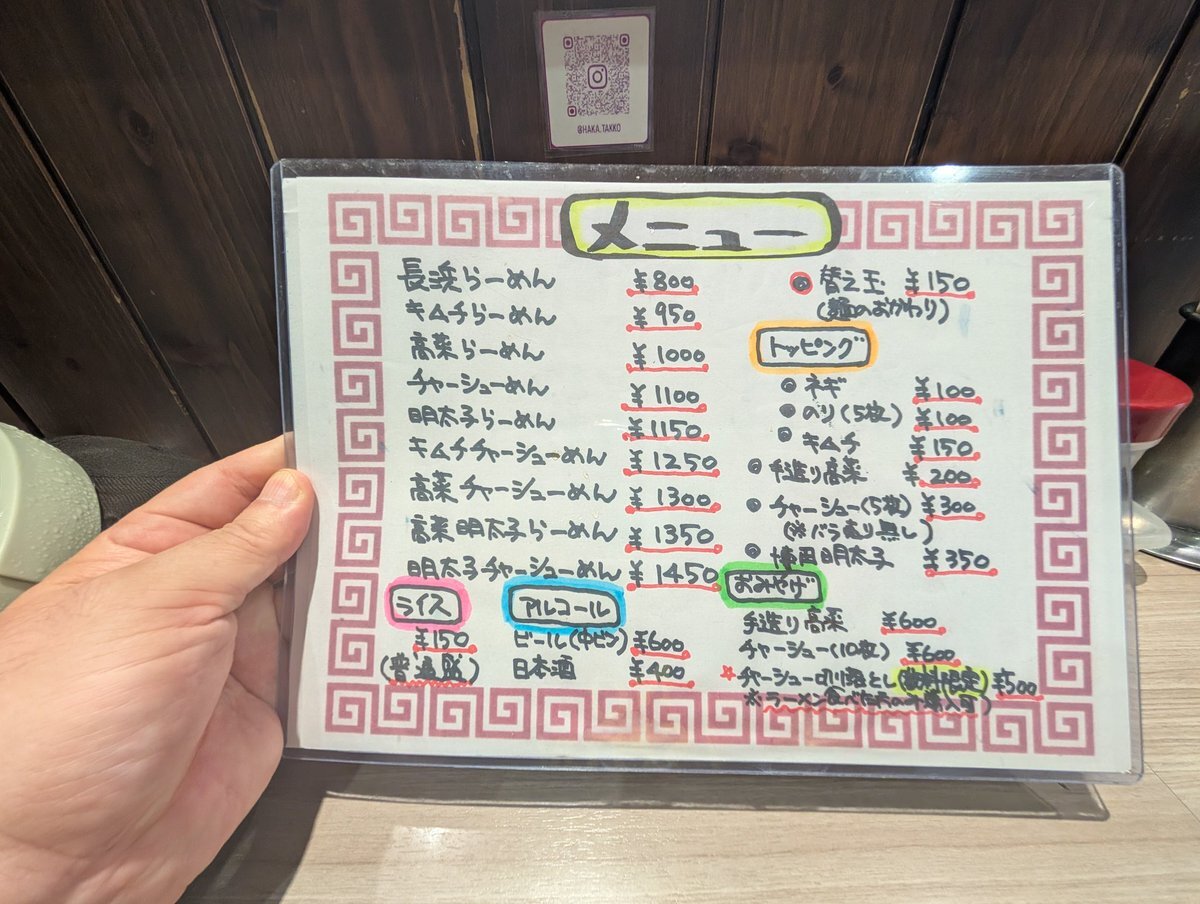 @HAKA.TAKKO
メニュー
長浜らーめん ¥800
キムチらーめん ¥950
高菜らーめん ¥1000
チャーシューめん ¥1100
明太子らーめん ¥1150
キムチチャーシューめん ¥1250
高菜チャーシューめん ¥1300
高菜明太子らーめん ¥1350
明太子チャーシューめん ¥1450
ライス
¥150
(普通盛)
アルコール
ビール(中ビン) ¥600
日本酒 ¥400
◎替え玉 ¥150
(麺のおかわり)
トッピング
◎ネギ ¥100
◎のり(5枚) ¥100
◎キムチ ¥150
◎手造り高菜 ¥200
◎チャーシュー(5枚) ¥300
(※バラ売り無し)
◎博田明太子 ¥350
おみやげ
手造り高菜 ¥600
チャーシュー(10枚) ¥600
☆チャーシュー切り落とし(数料限定) ¥500
※ラーメン食べた方のみ購入可)